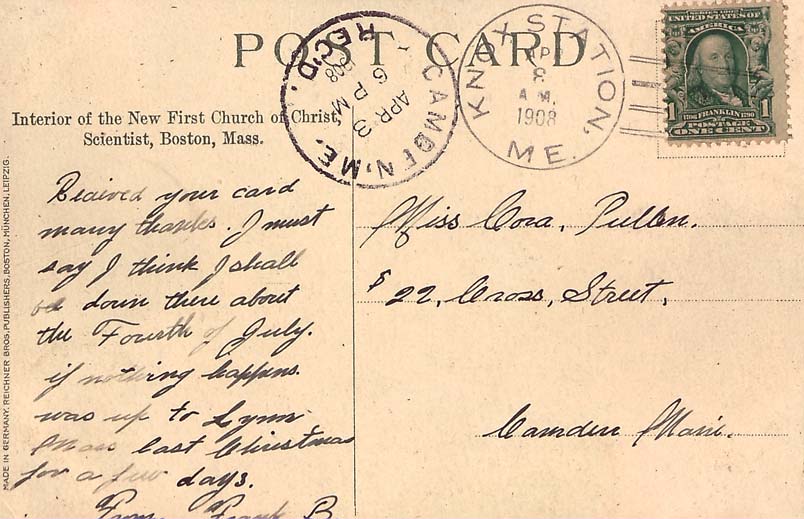 POST CARD
Interior of the New First Church of Christ,
Scientist, Boston, Mass.
MADE IN GERMANY. REICHNER BROS. PUBLISHERS, BOSTON, MÜNCHEN, LEIPZIG.
REC'D.
CAMDEN, ME.
APR 3
6 PM
1908
KNOX STATION,
AP
8
A.M.
1908
ME.
SERIES 1902
UNITED STATES OF
AMERICA
1706 FRANKLIN 1790
1 1
POSTAGE
ONE CENT
Reaived your card
many thanks. I must
say I think I shall
be down there about
the Fourth of July.
if nothing happens.
was up to Lynn
Mass last Christmas
for a few days.
From Frank B.
Miss Cora, Pullen.
$22, Cross, Street,
Camden Maine.